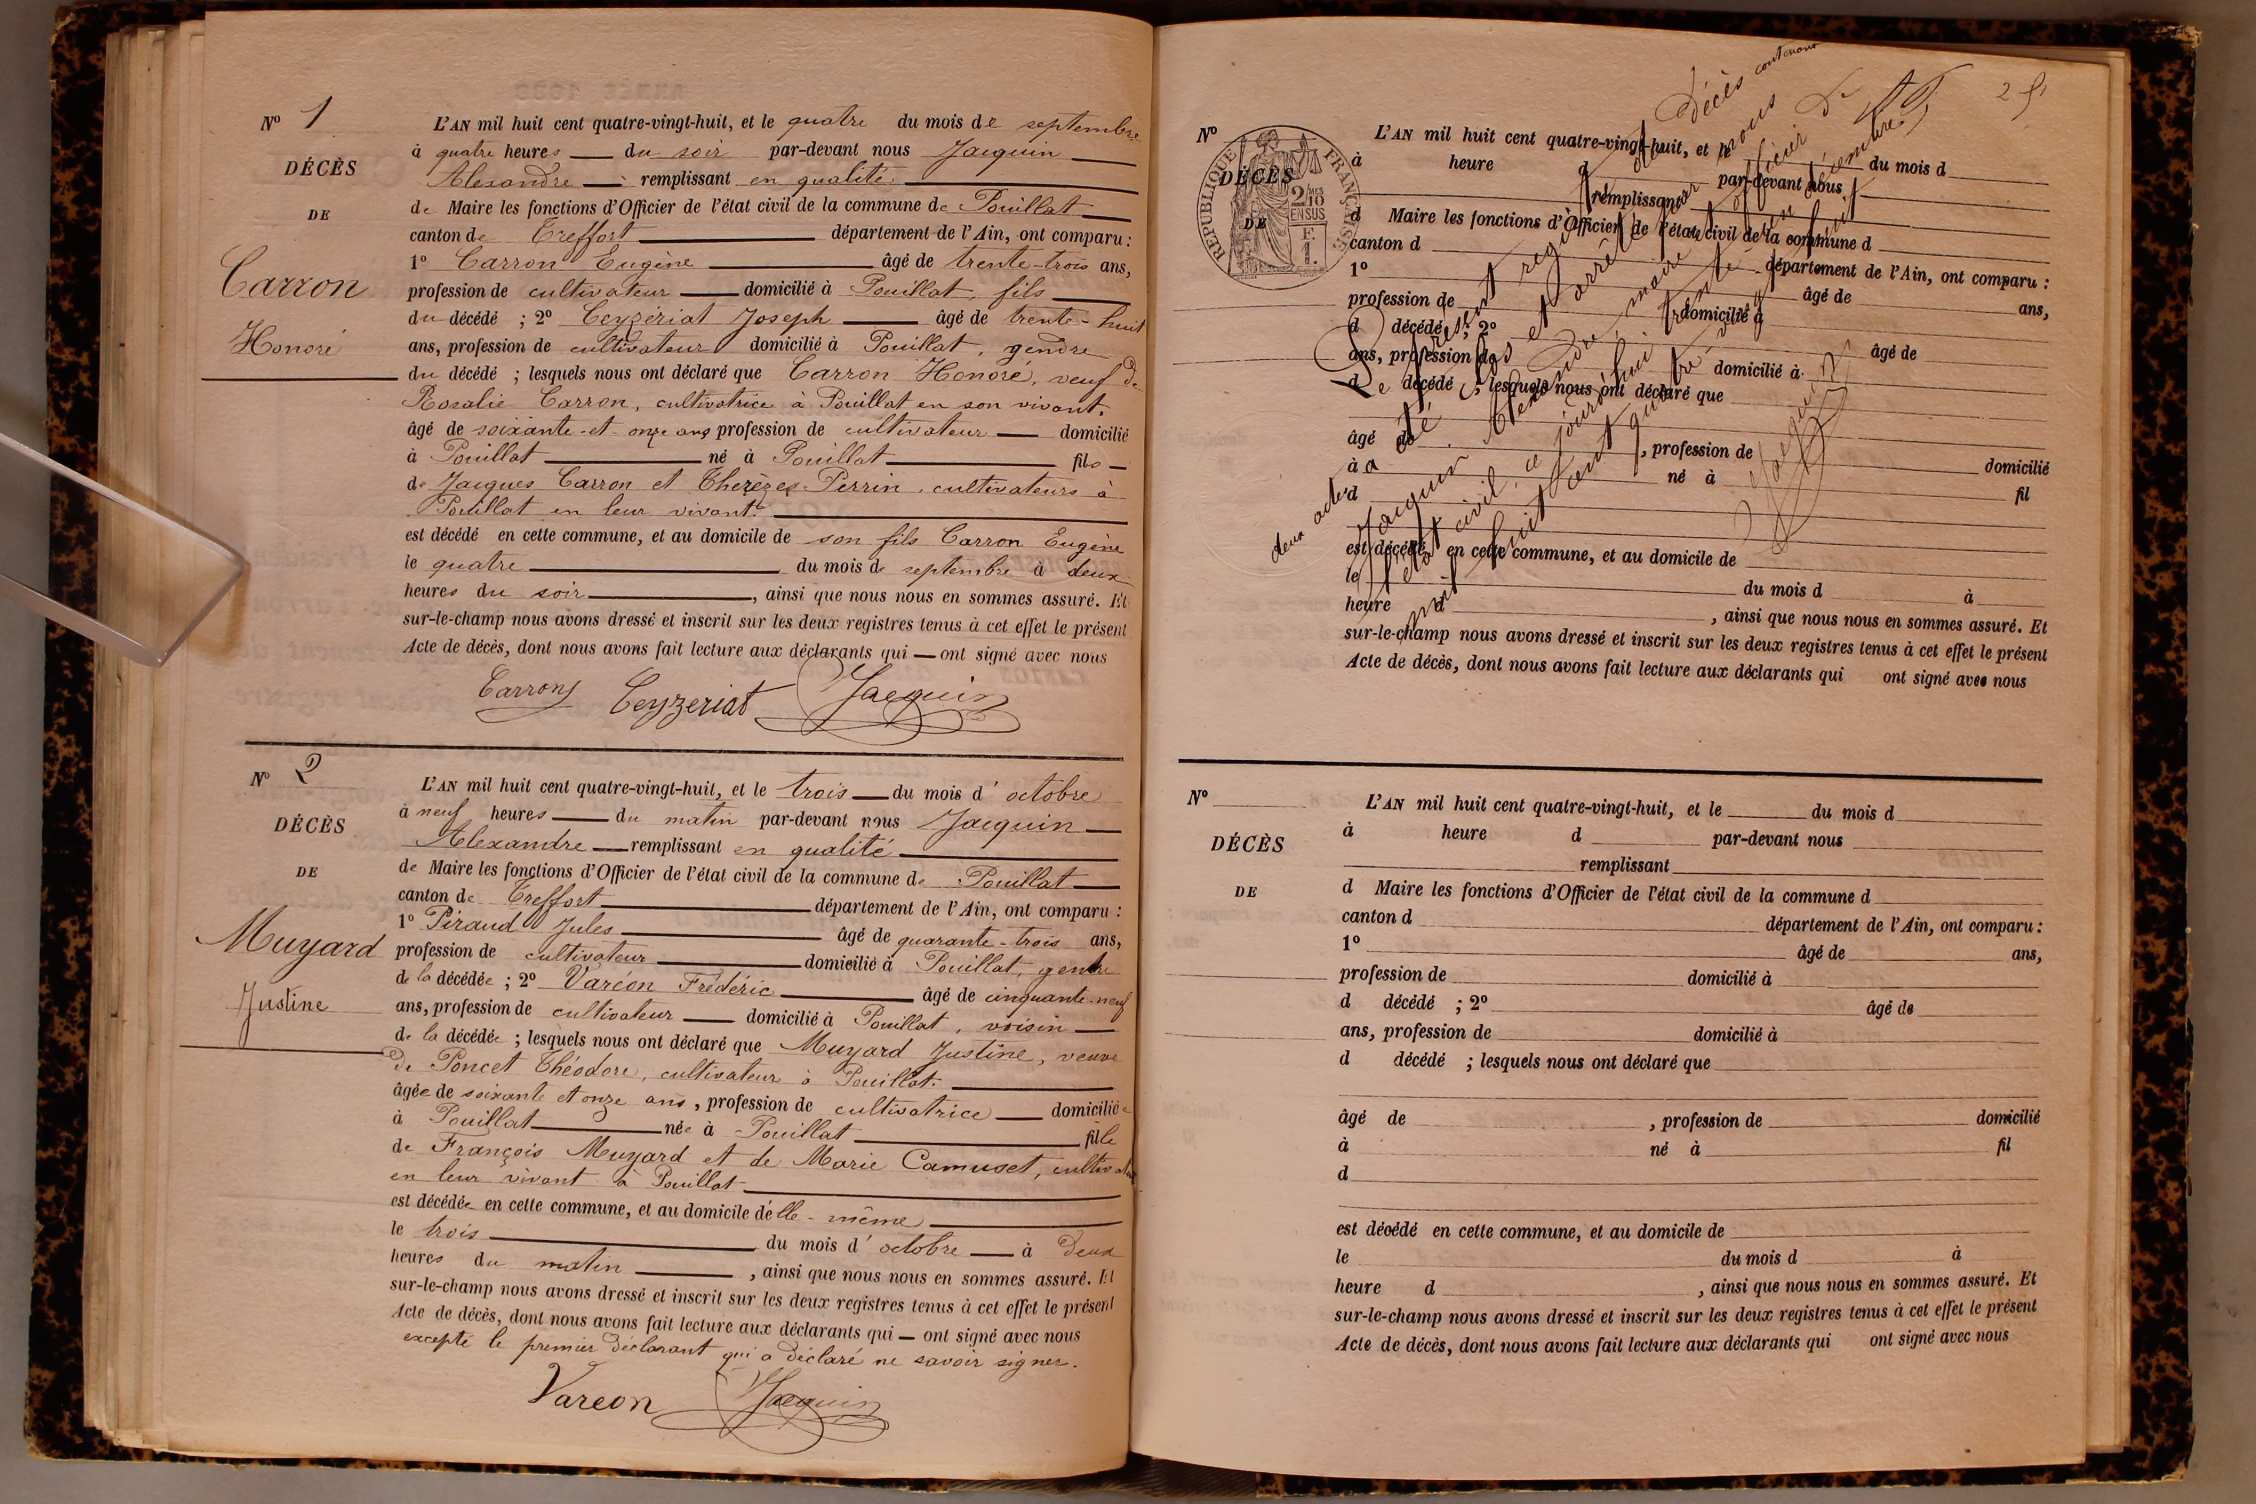 Nº 1
DÉCÈS
DE
Carron
Honoré
L'AN mil huit cent quatre-vingt-huit, et le quatre du mois de septembre
à quatre heures du soir par-devant nous Jacquin
Alexandre remplissant en qualité
de Maire les fonctions d'Officier de l'état civil de la commune de Pouillat
canton de Treffort département de l'Ain, ont comparu :
1º Carron Eugène âgé de trente-trois ans,
profession de cultivateur domicilié à Pouillat, fils
du décédé ; 2º Ceyzeriat Joseph âgé de trente-huit
ans, profession de cultivateur domicilié à Pouillat, gendre
du décédé ; lesquels nous ont déclaré que Carron Honoré, veuf de
Rosalie Carron, cultivatrice à Pouillat en son vivant,
âgé de soixante-et-onze ans profession de cultivateur domicilié
à Pouillat né à Pouillat fils
de Jacques Carron et Therèzes Perrin, cultivateurs à
Pouillat en leur vivant
est décédé en cette commune, et au domicile de son fils Carron Eugène
le quatre du mois de septembre à deux
heures du soir, ainsi que nous nous en sommes assuré. Et
sur-le-champ nous avons dressé et inscrit sur les deux registres tenus à cet effet le présent
Acte de décès, dont nous avons fait lecture aux déclarants qui — ont signé avec nous
Carron Ceyzeriat Jacquin
Nº 2
DÉCÈS
DE
Muyard
Justine
L'AN mil huit cent quatre-vingt-huit, et le trois du mois d'octobre
à neuf heures du matin par-devant nous Jacquin
Alexandre remplissant en qualité
de Maire les fonctions d'Officier de l'état civil de la commune de Pouillat
canton de Treffort département de l'Ain, ont comparu :
1º Piraud Jules âgé de quarante-trois ans,
profession de cultivateur domicilié à Pouillat, gendre
de la décédée ; 2º Varéon Frédéric âgé de cinquante-neuf
ans, profession de cultivateur domicilié à Pouillat, voisin
de la décédée ; lesquels nous ont déclaré que Muyard Justine, veuve
de Poncet Théodore, cultivateur à Pouillat.
âgée de soixante et onze ans, profession de cultivatrice domiciliée
à Pouillat née à Pouillat fille
de François Muyard et de Marie Camuset,
en leur vivant à Pouillat
est décédée en cette commune, et au domicile d'elle-même
le trois du mois d'octobre à deux
heures du matin, ainsi que nous nous en sommes assuré. Et
sur-le-champ nous avons dressé et inscrit sur les deux registres tenus à cet effet le présent
Acte de décès, dont nous avons fait lecture aux déclarants qui — ont signé avec nous
excepté le premier déclarant qui a déclaré ne savoir signer.
Vareon Jacquin
Nº
DÉCÈS
DE
RÉPUBLIQUE FRANÇAISE
2/10 MES
EN SUS
F.
1.
L'AN mil huit cent quatre-vingt-huit, et le du mois d
à heure d par-devant nous
remplissant
d Maire les fonctions d'Officier de l'état civil de la commune d
canton d département de l'Ain, ont comparu :
1º âgé de ans,
profession de domicilié à
d décédé ; 2º âgé de
ans, profession de domicilié à
d décédé ; lesquels nous ont déclaré que
âgé de , profession de domicilié
à né à fil
d
est décédé en cette commune, et au domicile de
le du mois d à
heure d , ainsi que nous nous en sommes assuré. Et
sur-le-champ nous avons dressé et inscrit sur les deux registres tenus à cet effet le présent
Acte de décès, dont nous avons fait lecture aux déclarants qui ont signé avec nous
Le présent registre de Décès contenant
deux actes a été clos et arrêté par nous
Jacquin Alexandre, maire et officier de
l'état civil, ce jourd'hui trente-un décembre
mil huit cent quatre-vingt-huit
Jacquin
Nº
DÉCÈS
DE
L'AN mil huit cent quatre-vingt-huit, et le du mois d
à heure d par-devant nous
remplissant
d Maire les fonctions d'Officier de l'état civil de la commune d
canton d département de l'Ain, ont comparu :
1º âgé de ans,
profession de domicilié à
d décédé ; 2º âgé de
ans, profession de domicilié à
d décédé ; lesquels nous ont déclaré que
âgé de , profession de domicilié
à né à fil
d
est décédé en cette commune, et au domicile de
le du mois d à
heure d , ainsi que nous nous en sommes assuré. Et
sur-le-champ nous avons dressé et inscrit sur les deux registres tenus à cet effet le présent
Acte de décès, dont nous avons fait lecture aux déclarants qui ont signé avec nous